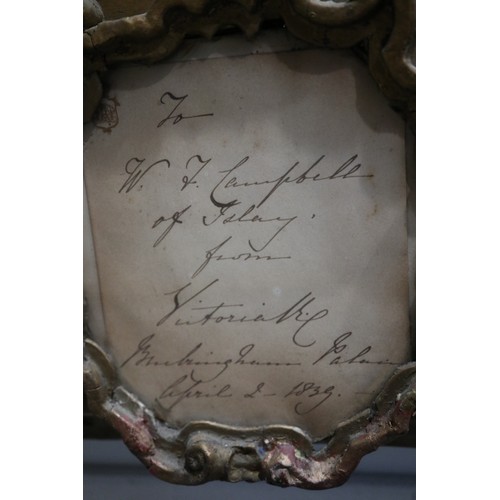 To
W. F. Campbell
of Islay.
from
Victoria R
Buckingham Palace
April 2 - 1839.